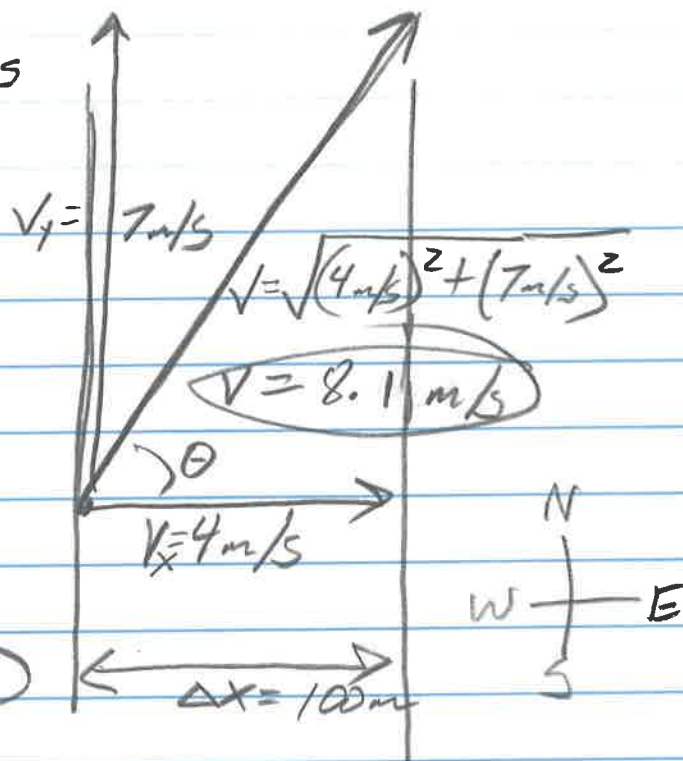 s
Vy = 7m/s
V = √(4m/s)² + (7m/s)²
V = 8.1 m/s
θ
Vx = 4m/s
N
W E
S
ΔX = 100m